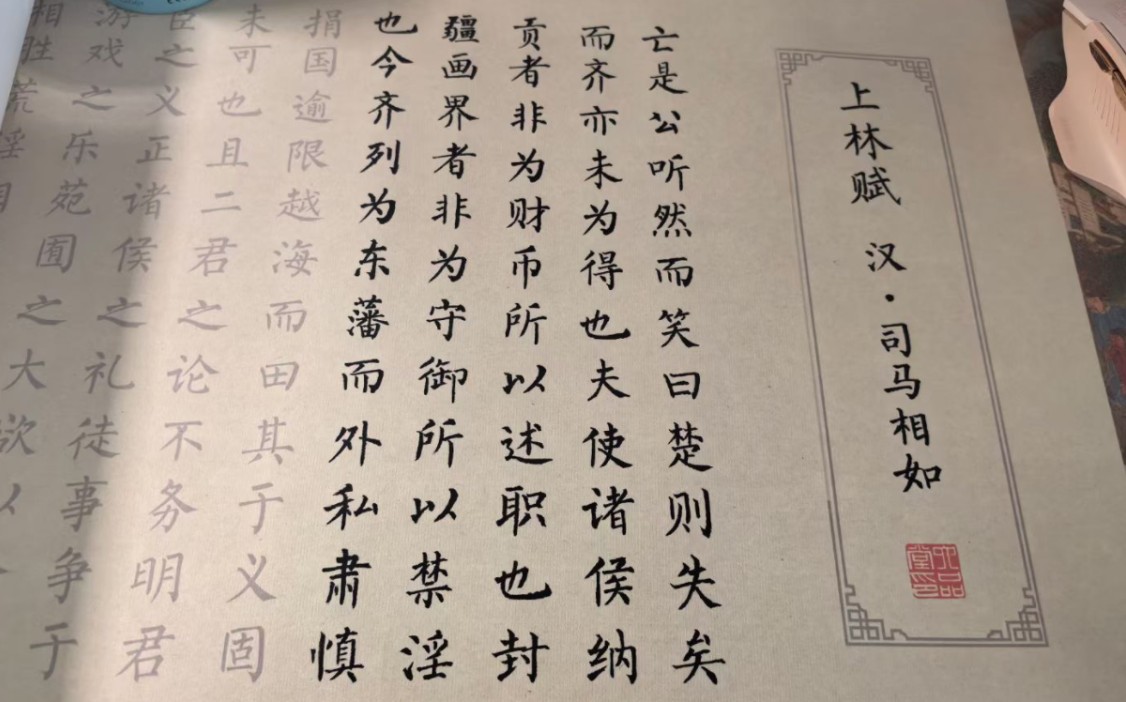 上林赋 汉·司马相如
六品堂印
亡是公听然而笑曰楚则失矣
而齐亦未为得也夫使诸侯纳
贡者非为财币所以述职也封
疆画界者非为守御所以禁淫
也今齐列为东藩而外私肃慎
捐国逾限越海而田其于义固
未可也且二君之论不务明君
臣之义正诸侯之礼徒事争于
游戏之乐苑囿之大欲以
相胜荒淫相